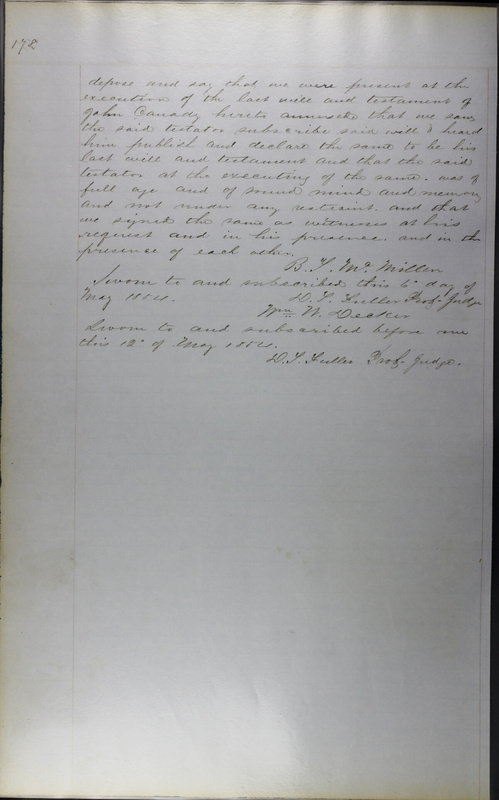 178
depose and say that we were present at the
execution of the last will and testament of
John Canady hereto annexed that we saw
the said testator subscribe said will & heard
him publish and declare the same to be his
last will and testament and that the said
testator at the executing of the same, was of
full age and of sound mind and memory
and not under any restraint, and that
we signed the same as witnesses at his
request and in his presence, and in the
presence of each other.
B. F. McMillen
Sworn to and subscribed this 6" day of
May 1884. D. T. Fuller Prob. Judge
Wm W. Decker
Sworn to and subscribed before me
this 12" of May 1884.
D. T. Fuller Prob. Judge.